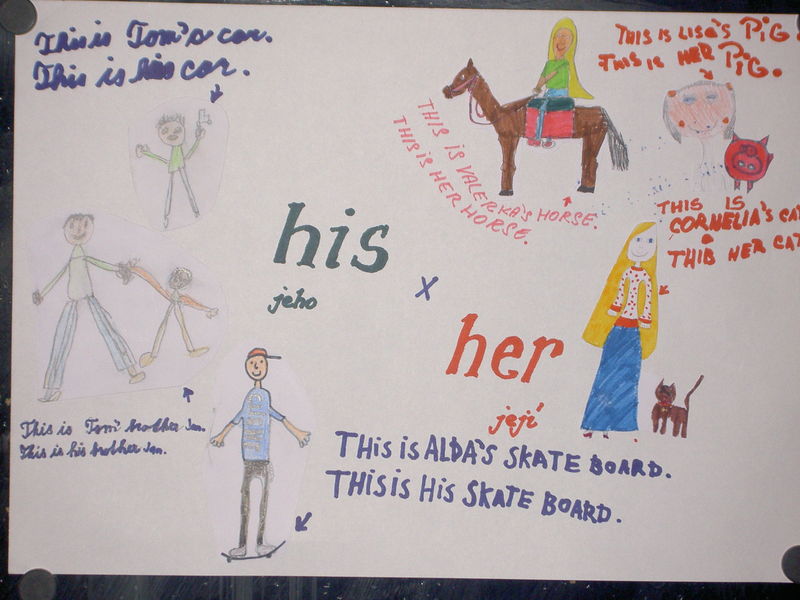 This is Tom's car.
This is his car.
THIS IS LISA'S PIG.
THIS IS HER PIG.
THIS IS VALERKA'S HORSE.
THIS IS HER HORSE.
THIS IS
CORNELIA'S CAT
THIS HER CAT
his
jeho
x
her
její
This is Tom' brother Jan.
This is his brother Jan.
THIS IS ALDA'S SKATE BOARD.
THIS IS HIS SKATE BOARD.